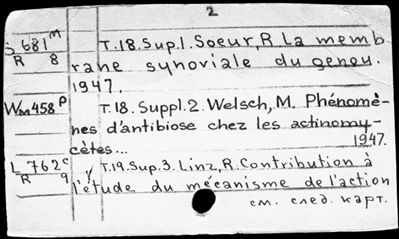 2
S 681 m T.18.Sup.1. Soeur, R. La memb
R 8 rane synoviale du genou.
1947.
Wm 458 p T.18. Suppl.2. Welsch, M. Phénomè-
nes d'antibiose chez les actinomy-
cètes... 1947.
L 762 c T.19.Sup.3. Linz, R. Contribution à
R 9 l'étude du mécanisme de l'action
см. след. карт.